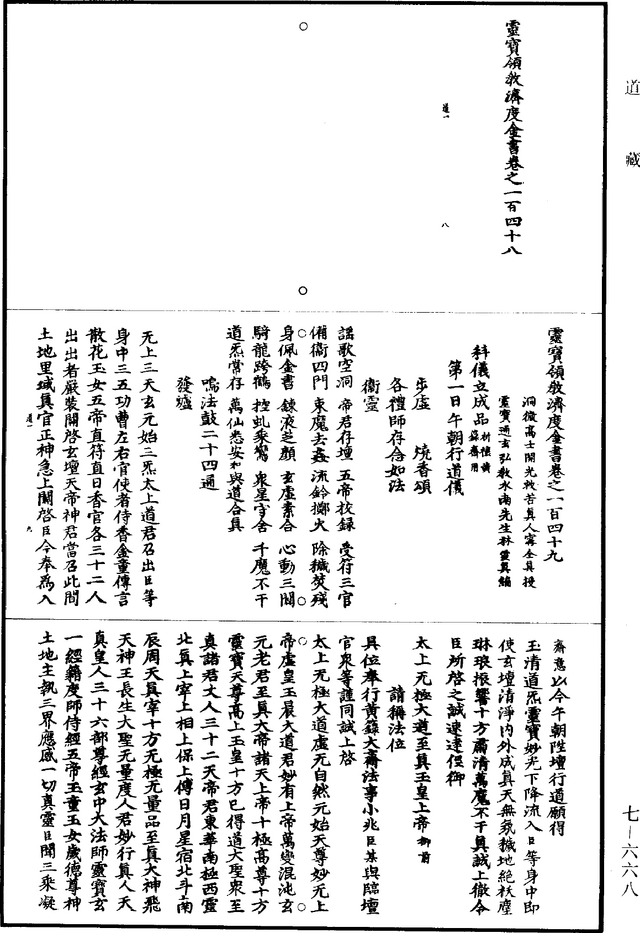 道藏
靈寶領教濟度金書卷之一百四十八
道一
八
靈寶領教濟度金書卷之一百四十九
洞微高士開光救苦真人甯全真授
靈寶通玄弘教水南先生林靈真編
科儀立成品
第一日午朝行道儀
步虛 燒香頌
各禮師存念如法
衛靈
謠歌空洞 帝君存壇 五帝校錄 受符三官
備衛四門 束魔去姦 流鈴擲火 除穢焚殘
身佩金書 鍊液芝顏 玄虛素合 心動三關
騎龍跨鶴 控虬乘鸞 泉星守舍 千魔不干
道炁常存 萬仙悉安 和與道合真
鳴法鼓二十四通
發爐
无上三天玄元始三炁太上道君召出臣等
身中三五功曹左右官使者侍香金童傳言
散花玉女五帝直符直日香官各三十二人
出出者嚴裝關啓玄壇天帝神君當召此間
土地里域真官正神急上關啓臣今奉為入
九
齋意以今午朝陞壇行道願得
玉清道炁靈寶妙光下降流入臣等身中即
使玄壇清淨內外成真天無氛穢地絕袄塵
琳琅振響十方肅清萬魔不干真誠上徹令
臣所啓之誠速達徑御
太上无極大道至真玉皇上帝御前
請稱法位
具位奉行黃籙大齋法事小兆臣某與臨壇
官衆等謹同誠上啓
太上无極大道虛无自然元始天尊妙无上
帝虛皇玉晨大道君妙有上帝萬變混沌玄
元老君至真大帝諸天上帝十極高尊十方
靈寶天尊高上玉皇十方已得道大聖衆至
真諸君丈人三十二天帝君東華南極西靈
北真上宰上相上保上傅日月星宿北斗南
辰周天真宰十方无極无量品至真大神飛
天神王長生大聖无量度人君妙行真人天
真皇人三十六部尊經玄中大法師靈寶玄
一經籍度師侍經五帝玉童玉女歲德尊神
土地主執三界應感一切真靈臣聞三乘凝
七—六六八